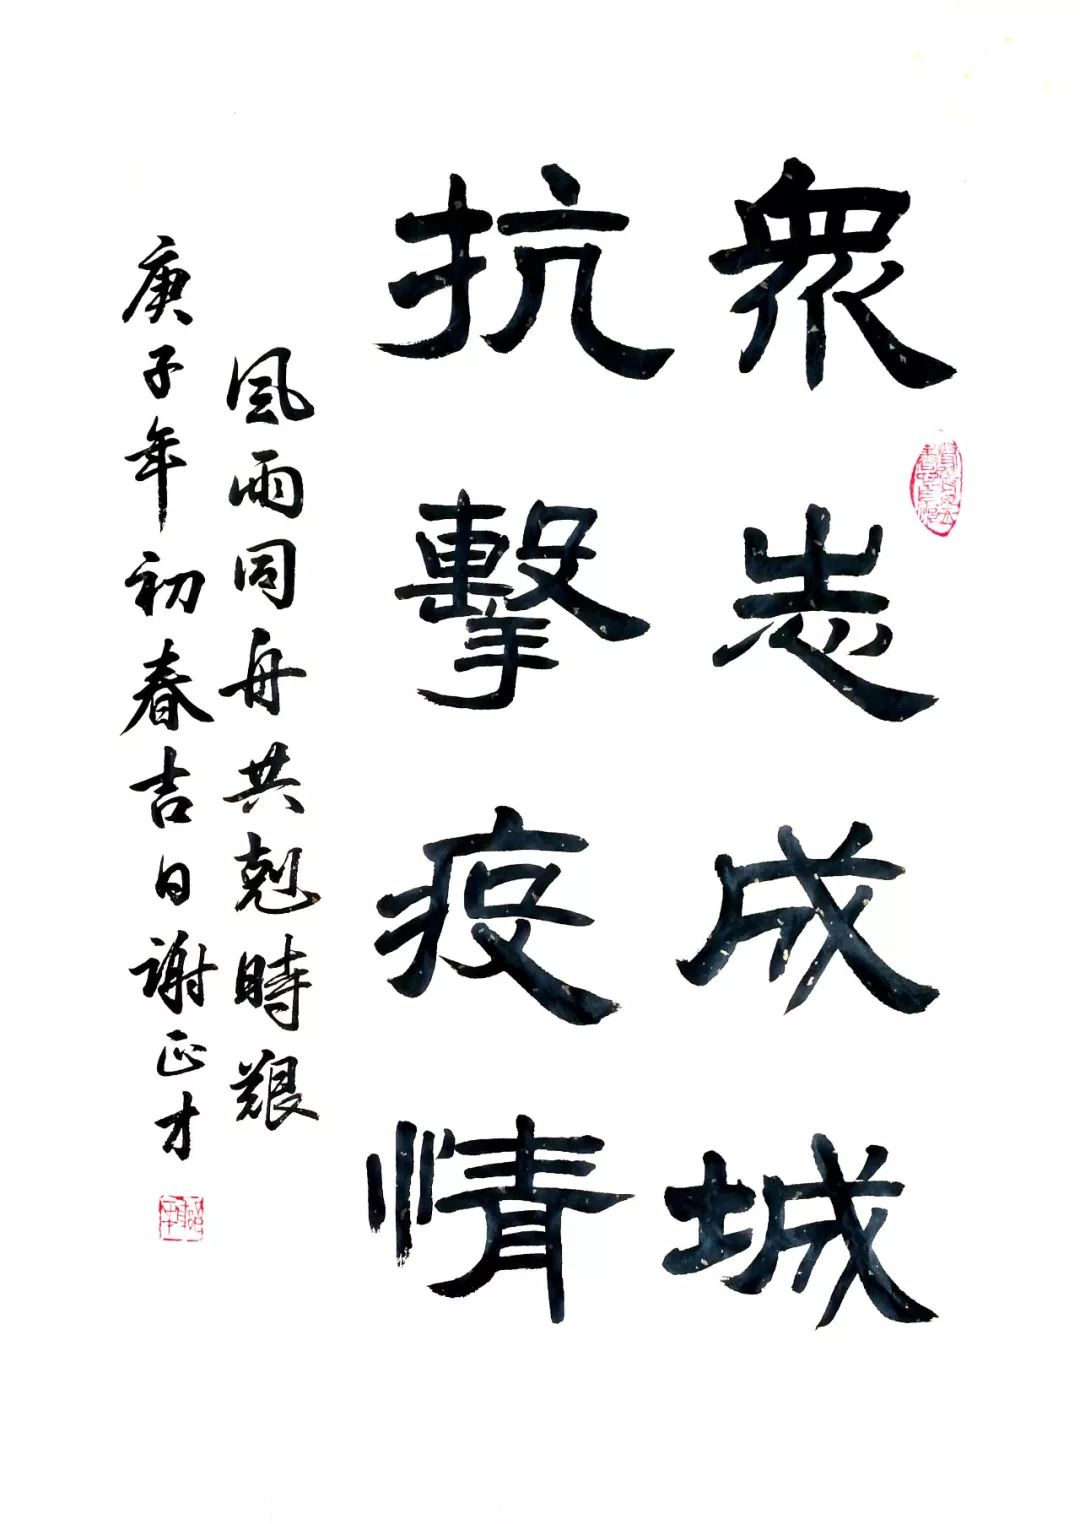 衆志成城
抗擊疫情
風雨同舟共剋時艱
庚子年初春吉日謝正才